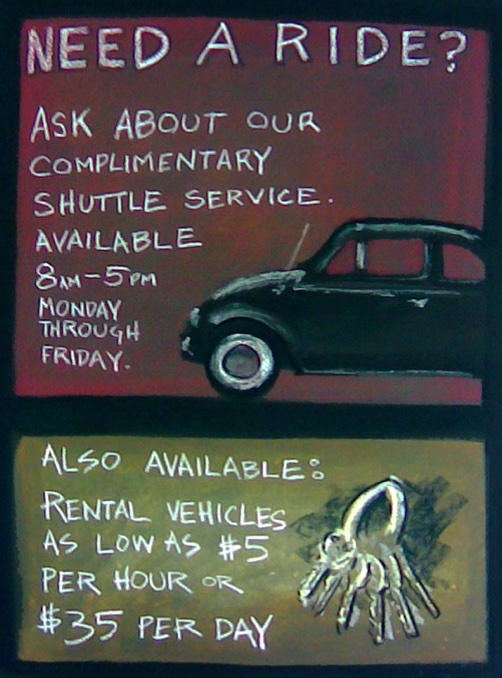 NEED A RIDE?
ASK ABOUT OUR
COMPLIMENTARY
SHUTTLE SERVICE.
AVAILABLE
8AM-5PM
MONDAY
THROUGH
FRIDAY.
ALSO AVAILABLE:
RENTAL VEHICLES
AS LOW AS $5
PER HOUR OR
$35 PER DAY